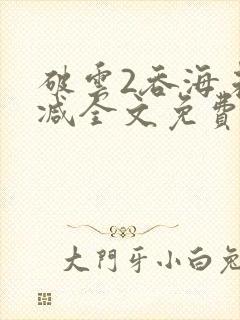 破云2吞海未
减全文免費
大門牙小白兔